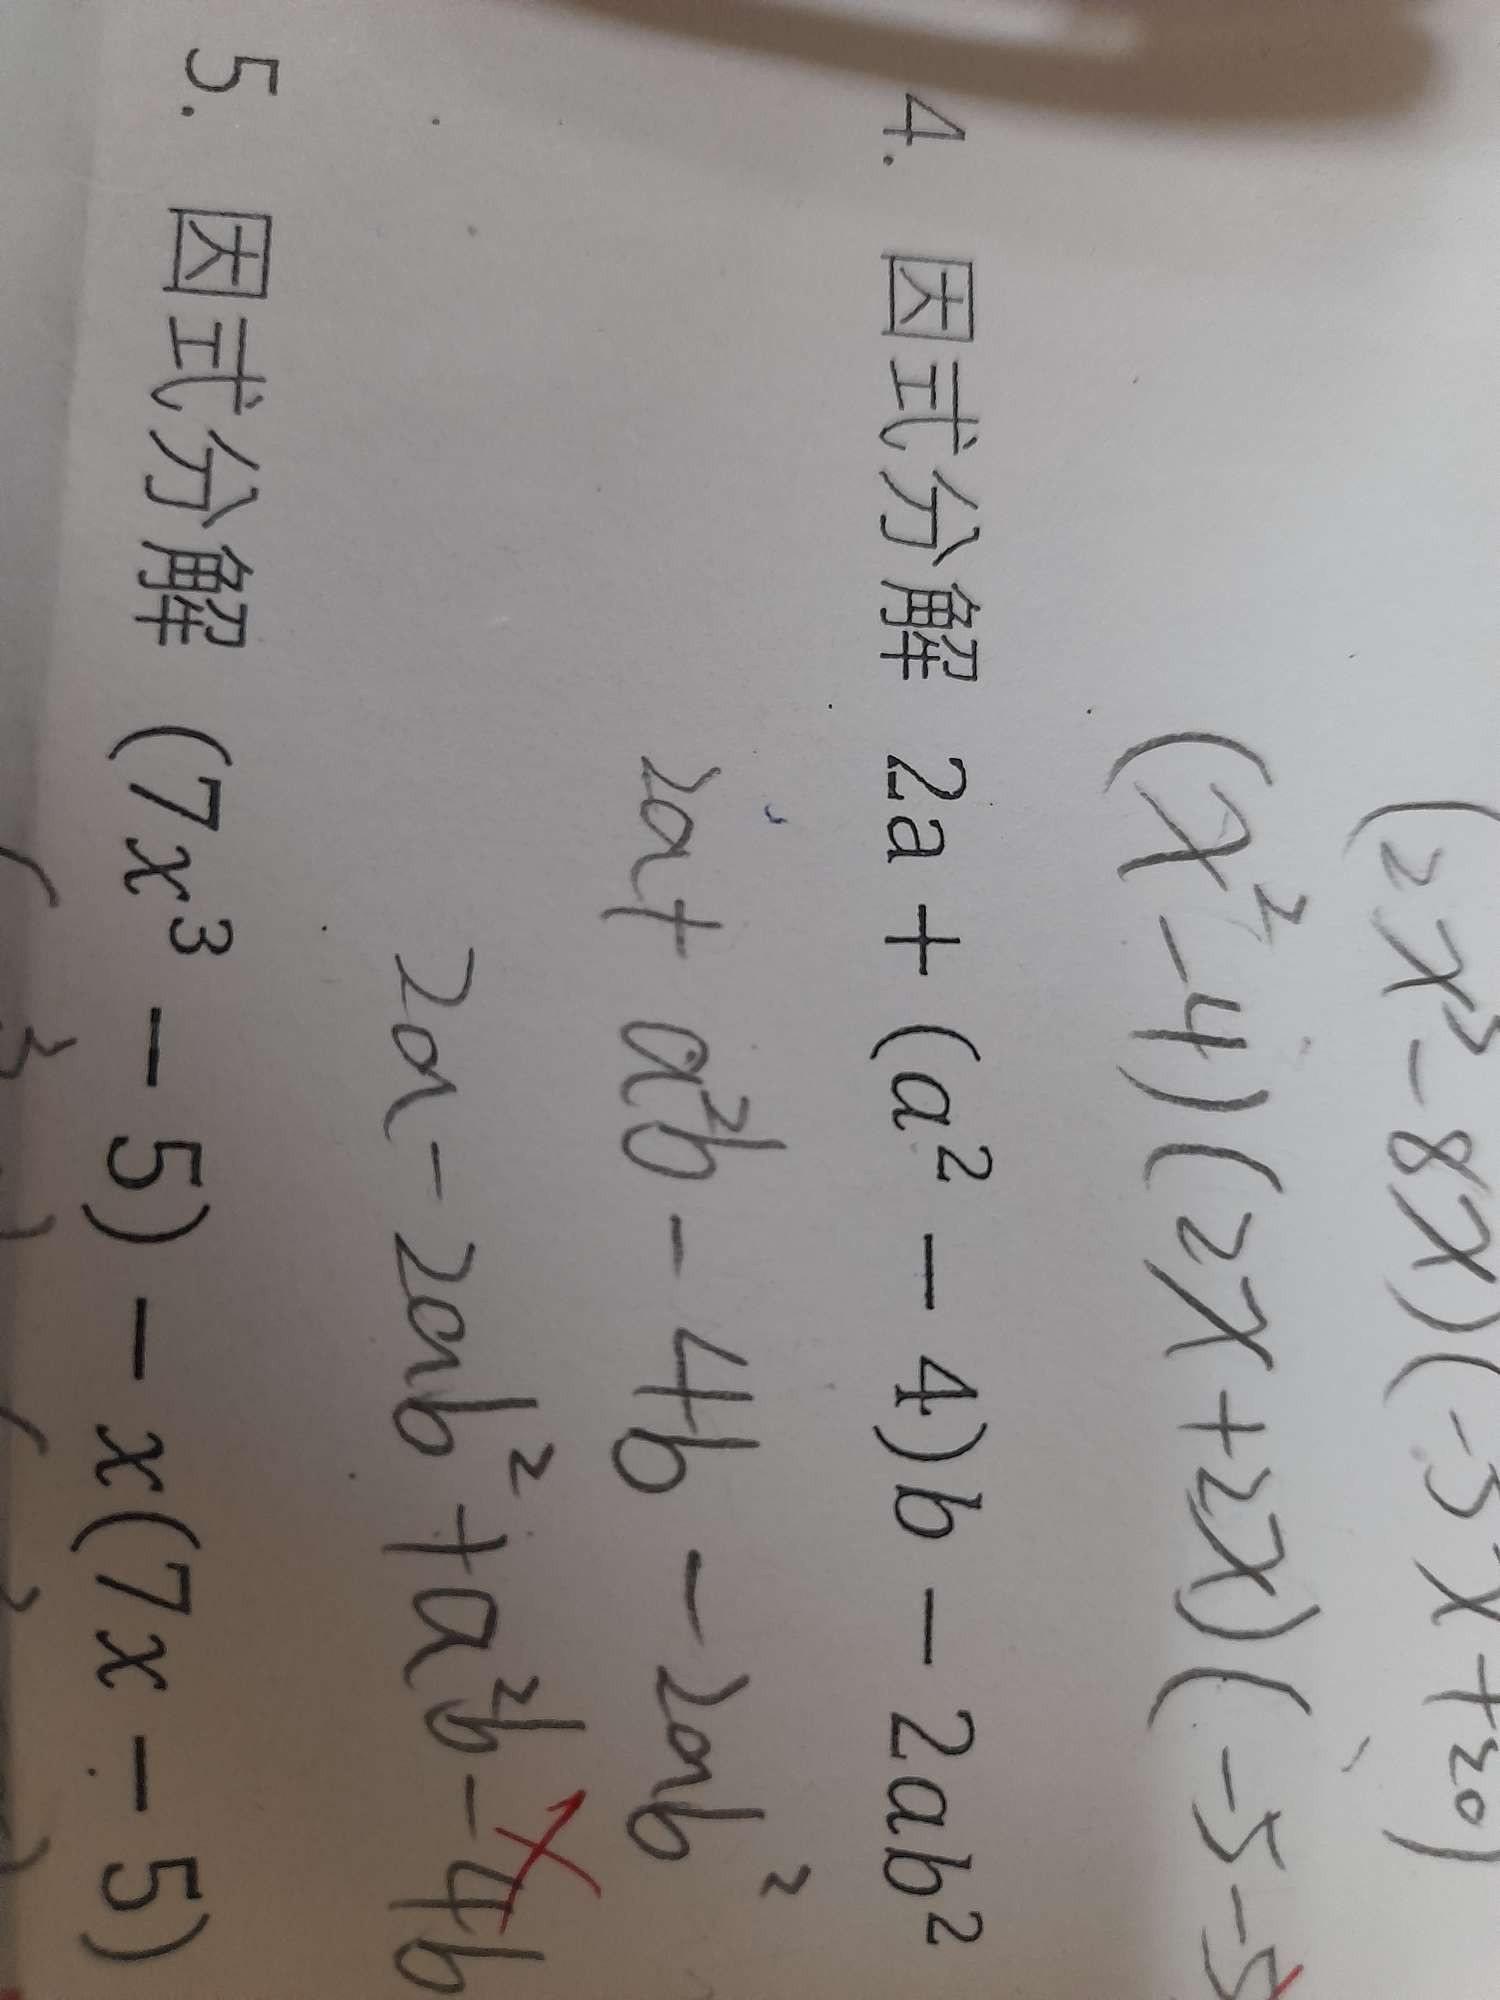 (2x³-8x)(-5x+20)
(x²-4)(2x+2x)(-5-5
4. 因式分解 2a + (a² − 4)b − 2ab²
2a+a²b-4b-2ab²
2a-2ab²+a²b-4b
5. 因式分解 (7x³ − 5) − x(7x − 5)